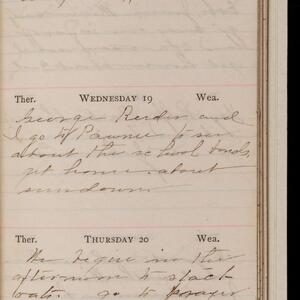 Ther. WEDNESDAY 19 Wea.
George Reeder and
I go to Pawnee to see
about the school bonds,
get home about
sundown.
Ther. THURSDAY 20 Wea.
We begin in the
afternoon to stack
oats. go to prayer